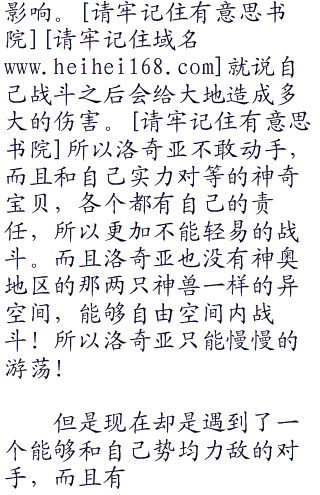 影响。[请牢记住有意思书
院][请牢记住域名
www.heihei168.com]就说自
己战斗之后会给大地造成多
大的伤害。[请牢记住有意思
书院]所以洛奇亚不敢动手，
而且和自己实力对等的神奇
宝贝，各个都有自己的责
任，所以更加不能轻易的战
斗。而且洛奇亚也没有神奥
地区的那两只神兽一样的异
空间，能够自由空间内战
斗！所以洛奇亚只能慢慢的
游荡！
但是现在却是遇到了一
个能够和自己势均力敌的对
手，而且有